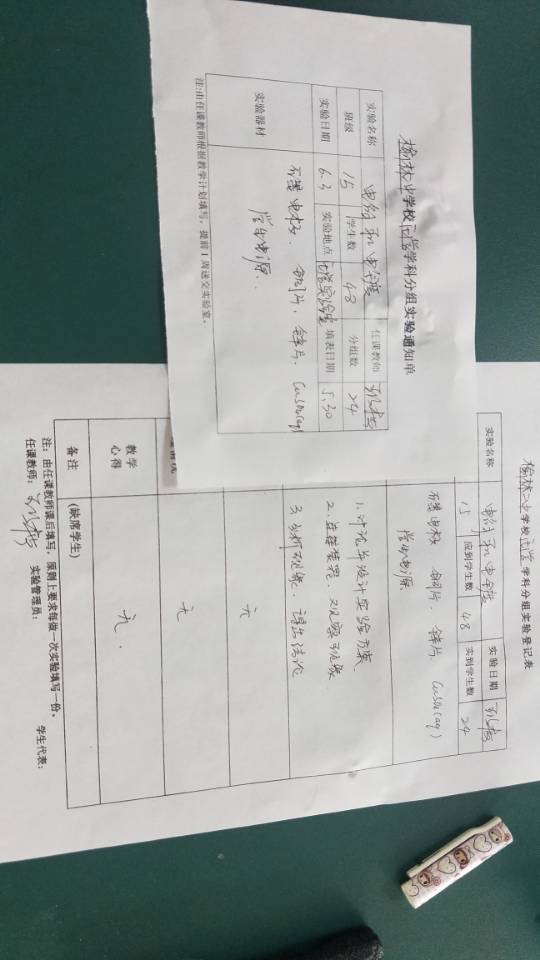 榆林中学校化学学科分组实验通知单
实验名称 电解和电镀 任课教师
班级 15 学生数 48 分组数 24
实验日期 6.3 实验地点 化学实验室 填表日期 5.30
实验器材 石墨电极、铜片、锌片、CuSO4(aq)
学生电源.
注:由任课教师根据教学计划填写，提前1周送交实验室。
榆林中学校化学学科分组实验登记表
实验名称 电解和电镀 实验日期
15 应到学生数 48 实到学生数 24
石墨电极 铜片、锌片 CuSO4(aq)
学生电源
1.讨论并设计实验方案
2.连接装置、观察现象
3.分析现象、得出结论
无
无
教学心得 无.
备注 (缺席学生)
注：由任课教师课后填写，原则上要求每做一次实验填写一份。
任课教师： 实验管理员： 学生代表：